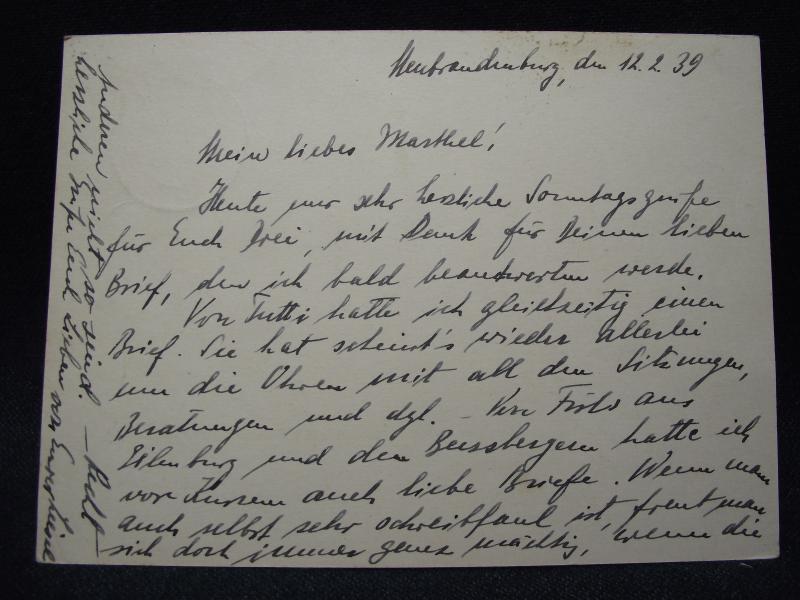 Neubrandenburg, den 12.2.39
Mein liebes Marthel!
Heute nur sehr herzliche Sonntagsgrüße
für Euch Drei, mit Dank für Deinen lieben
Brief, den ich bald beantworten werde.
Von Tutti hatte ich gleichzeitig einen
Brief. Sie hat scheint's wieder allerlei
um die Ohren mit all den Sitzungen,
Beratungen und dgl. – Von aus
Eilenburg und den hatte ich
vor Kurzem auch liebe Briefe. Wenn man
auch selbst sehr schreibfaul ist, freut man
sich doch immer ganz mächtig, wenn die
Anderen nicht so sind. – Recht
herzliche Grüße Euch Lieben von Eurer